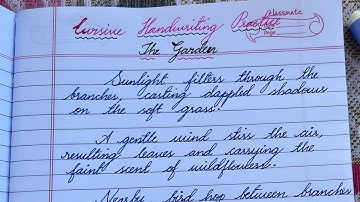 Cursive Handwriting Practice
classmate
Page
The Garden
Sunlight filters through the
branches, casting dappled shadows
on the soft grass.
A gentle wind stirs the air,
resulting leaves and carrying the
faint scent of wildflowers.
Nearby, bird hop between branches